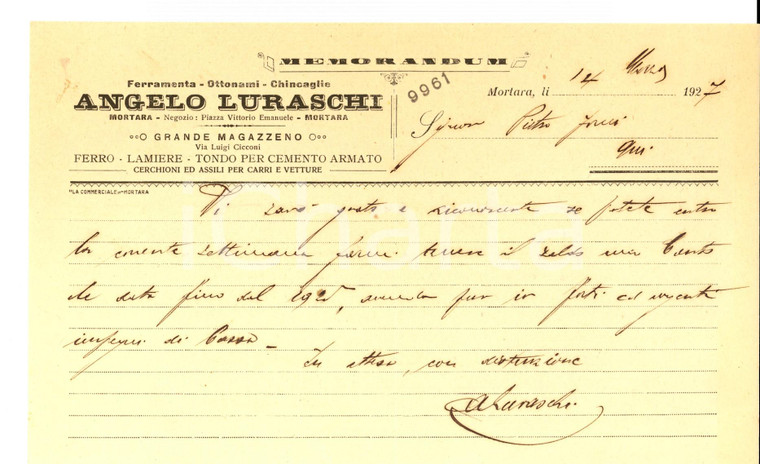 MEMORANDUM
Ferramenta - Ottonami - Chincaglie
ANGELO LURASCHI
MORTARA - Negozio: Piazza Vittorio Emanuele - MORTARA
GRANDE MAGAZZENO
Via Luigi Cicconi
FERRO - LAMIERE - TONDO PER CEMENTO ARMATO
CERCHIONI ED ASSILI PER CARRI E VETTURE
"LA COMMERCIALE" - MORTARA
9961
Mortara, li 14 1927
Signor Pietro
Qui
Vi sarò grato e riconoscente se potete entro
la corrente settimana farmi tenere il saldo mio Conto
che data fino dal 1925, avendo pur io forti ed urgenti
impegni di Cassa -
In attesa, con distinzione
ALuraschi
iCharta